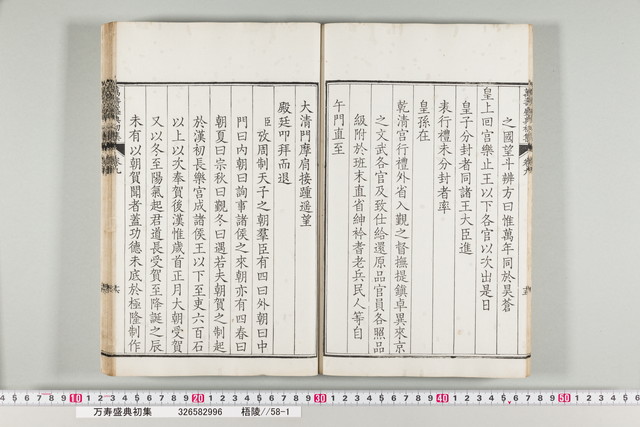 之國望斗辨方曰惟萬年同於昊蒼
皇上回宮樂止王以下各官以次出是日
皇子分封者同諸王大臣進
表行禮未分封者率
皇孫在
乾清宮行禮外省入覲之督撫提鎮卓異來京
之文武各官及致仕給還原品官員各照品
級附於班末直省紳衿耆老兵民人等自
午門直至
大清門摩肩接踵遥望
殿廷叩拜而退
臣攷周制天子之朝羣臣有四曰外朝曰中
門曰内朝曰詢事諸侯之來朝亦有四春曰
朝夏曰宗秋曰覲冬曰遇若夫朝賀之制起
於漢初長樂宮成諸侯王以下至吏六百石
以上以次奉賀後漢惟歲首正月大朝受賀
又以冬至陽氣起君道長受賀至降誕之辰
未有以朝賀聞者蓋功德未底於極隆制作
萬壽盛典初集 卷九
10 20 30 40 50
万寿盛典初集 326582996 梧陵//58-1